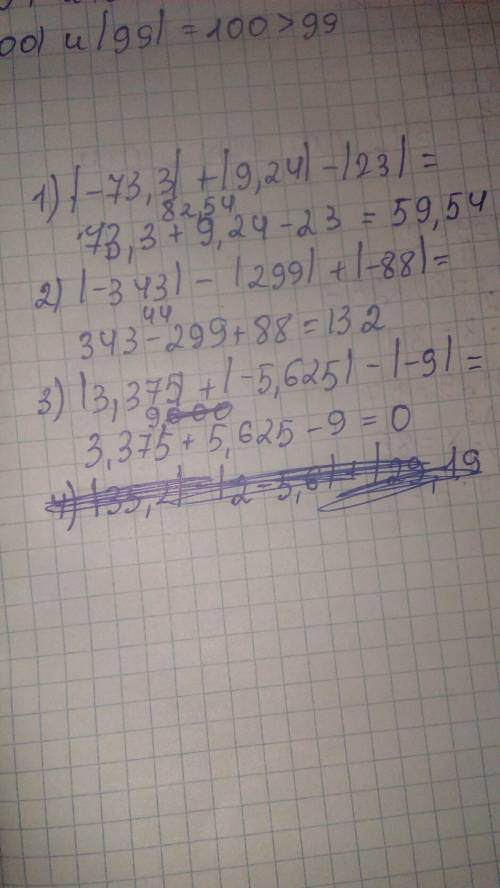 00| и |99| = 100 > 99
1) |-73,3| + |9,24| - |23| =
82,54
73,3 + 9,24 - 23 = 59,54
2) |-343| - |299| + |-88| =
44
343 - 299 + 88 = 132
3) |3,375| + |-5,625| - |-9| =
9,000
3,375 + 5,625 - 9 = 0
4)